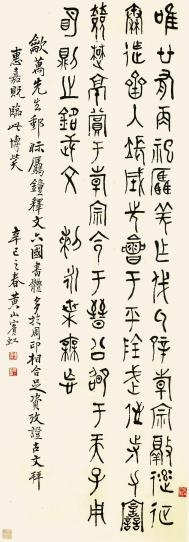 唯廿又再祀驫羌乍戎氒辟倝宗敲逹征
秦迮齊入張城先會于平陰武侄寺力
敓楚京賞于倝宗令于晉公卲于天子用
明則之銘武文剌永枼毋忘
歙萬先生郵示屬鐘釋文六國書體多於周印相合足資攷證古文拜
惠嘉貺臨此博笑 辛巳之春黃山賓虹